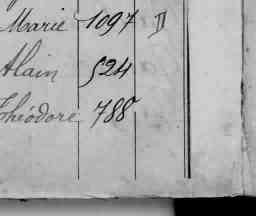 Marie 1097 D
Alain 524
Théodore 788